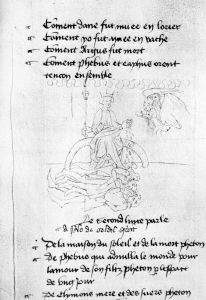 Coment dane fut muee en lorier
Coment yo fut muee en vache
Coment Argus fut mort
Coment phebus et cupido orent
tencon ensemble
Le second livre parle
De la maison du soleil et de la mort pheton
de phebus qui adnulla le monde pour
lamour de son filz pheton
de Clymone mere et des suers pheton